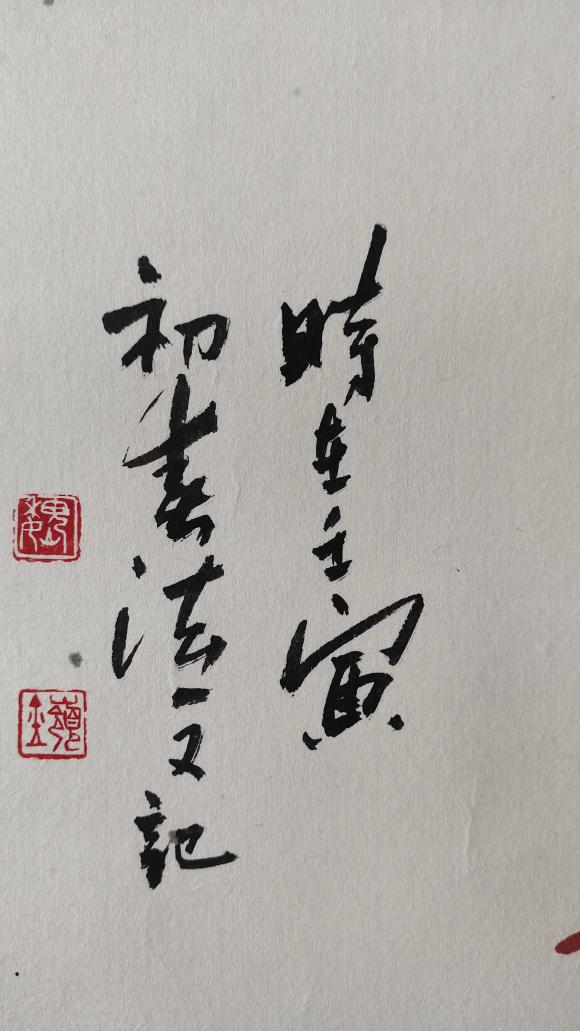 時在壬寅
初春法文記
魏